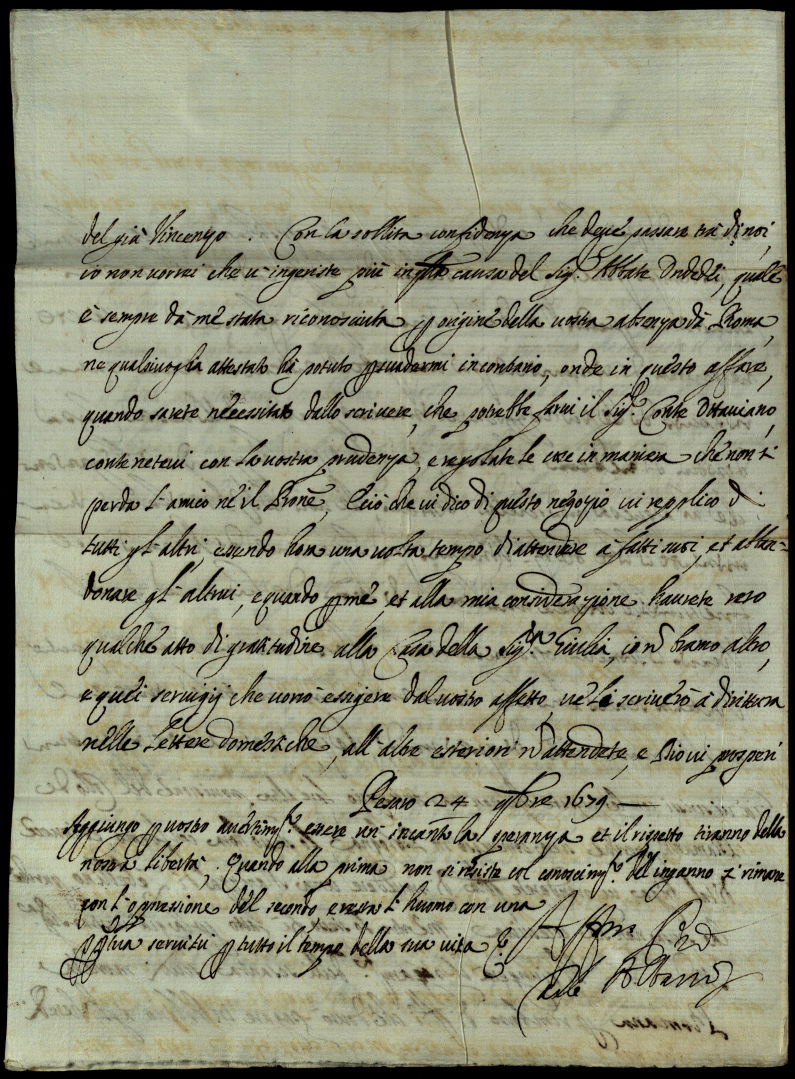 del già Vincenzo. Con la sollita confidenza che deve passare trà di noi,
io non vorrei che v'ingeriste più in q.ta causa del Sig.r Abbate quale
è sempre da mè stata riconosciuta p origine della vostra absenza da Roma,
ne qualsivoglia attestato hà potuto p suadermi in contrario, onde in questo affare,
quando sarete necessitato dallo scrivere, che potrebbe farvi il Sig.r Conte Ottaviano,
contenetevi con la vostra prudenza, e regolate le cose in maniera che non si
perda l'amico nè il Pròne, e ciò che vi dico di questo negozio vi replico di
tutti gl'altri, essendo hora una volta tempo d'attendere a fatti suoi, et abban-
donare gl'altrui, e quando p mè, et alla mia considerazione haverete reso
qualche atto di gratitudine alla Casa della Sig.ra Giulia, io nõ bramo altro,
e quei servigij che vorrò esigere dal vostro affetto, ve li scriverò à dirittura
nelle lettere domestiche, all'altre esteriori nõ attendete, e Dio vi prosperi
Pesaro 24 9bre 1679
Aggiungo p vostro avertim.to essere un'incanto la speranza et il rispetto tiranno della
nostra libertà, quando alla prima non si resiste col conoscim.to dell'inganno si rimane
con l'oppressione del secondo, e resta l'huomo con una
p p tua servitù p tutto il tempo della sua vita
Aff.mo